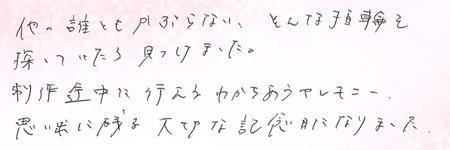 他の誰ともかぶらない、そんな指輪を
探していたら見つけました。
制作途中に行えるわかちあうセレモニー、
思い出に残る大切な記念日になりました。